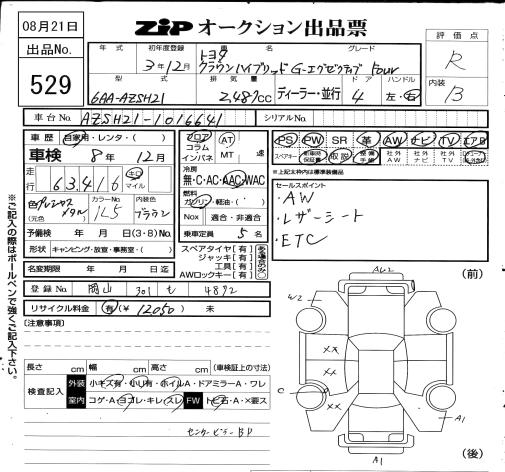 08月21日
ZIP オークション出品票
出品No.
529
年式 初年度登録 車名 グレード
3年12月 トヨタ
クラウンハイブリッド G-エグゼクティブ Four
型式 排気量 ドア ハンドル
6AA-AZSH21 2,487cc ディーラー・並行 4 左・右
評価点
R
内装
B
車台No. AZSH21-1016641 シリアルNo.
車歴 自家用・レンタ・( )
車検 8年12月
走行 63,416 キロ マイル
色 (元色) カラーNo. 1L5 内装色 ブラウン
予備検 年 月 日(3・8)No.
形状 キャンピング・放宣・事務室・( )
名変期限 年 月 日迄
フロア コラム インパネ
AT MT 速
冷房 無・C・AC・AAC・WAC
燃料 ガソリン・軽油・( )
Nox 適合・非適合
乗車定員 5名
スペアタイヤ[有]
ジャッキ[有]
工具[有]
AWロックキー[有]
ある場合のみ○
PS PW SR 革 AW ナビ TV エアB
スペアキー 新車時保証書 取説 整備手帳 社外AW 社外ナビ 社外TV
※上記以外は標準装備品
セールスポイント
・AW
・レザーシート
・ETC
登録No. 岡山 301 も 4892
リサイクル料金 有(¥ 12050) 未
(注意事項)
※ご記入の際はボールペンで強くご記入下さい。
長さ cm 幅 cm 高さ cm (車検証上の寸法)
検査記入 外装 小キズ有・小凹有・ホイルA・ドアミラーA・ワレ
室内 コゲ・A・ヨゴレ・キレ・スレ FW トビ石・A・X要ス
センターピラーBP
(前)
(後)
AW2
W2
XX
XX
XX
C
P
A1
A1